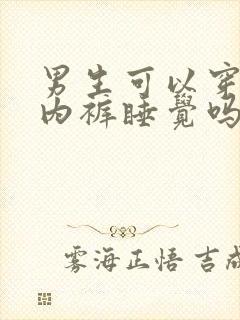 男生可以穿
内裤睡覺吗
雾海正悟 吉成